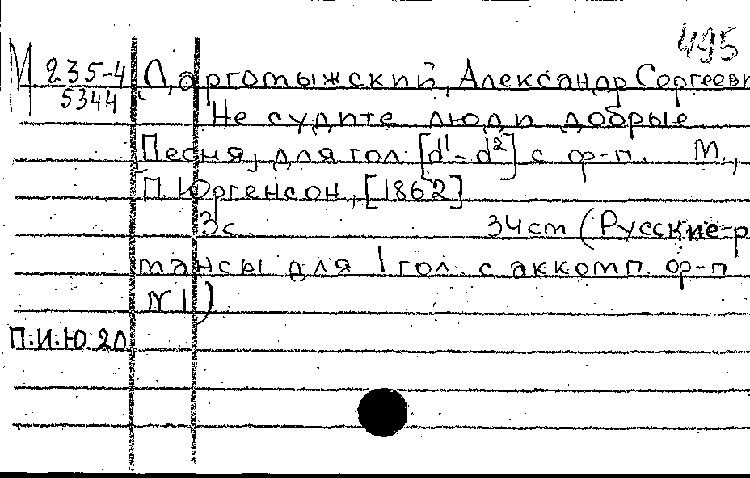 495
М 235-4 Даргомыжский, Александр Сергееви
5344
Не судите люди добрые
Песня, для гол. [d¹-d²] с ф-п. М.,
П. Юргенсон, [1862]
3с 34 cm (Русские-р
мансы для 1 гол. с аккомп. ф-п
N 1)
П.И.Ю.20